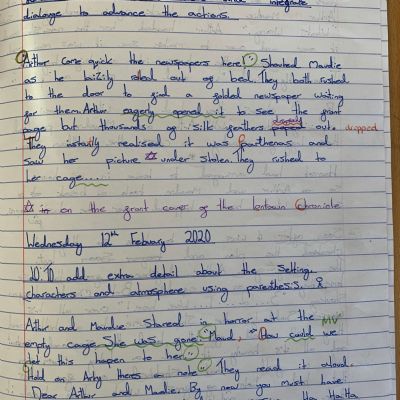 integrate
dialouge to advance the actions.
Arthur Come quick the newspapers here! Shouted Maudie
as he out of bed. They both rushed
to the door to find a folded newspaper waiting
for them. Arthur eagerly opened it to see the front
page but thousands of silk feathers out. dropped
They instantly realised it was Parthenas and
saw her picture ☆ under stolen. They rushed to
her cage....
☆ on the front cover of the Lontown Chronicle
Wednesday 12th Febuary 2020
LO: To add extra detail about the setting,
characters and atmosphere using parenthesis.
Arthur and Maudie Stared in horror at the
empty cage. She was gone. "Maud, How could we
let this happen to her."
Hold on Arty theres a note." They read it aloud.
Dear Arthur and Maudie. By now you must have
Ha Ha Ha